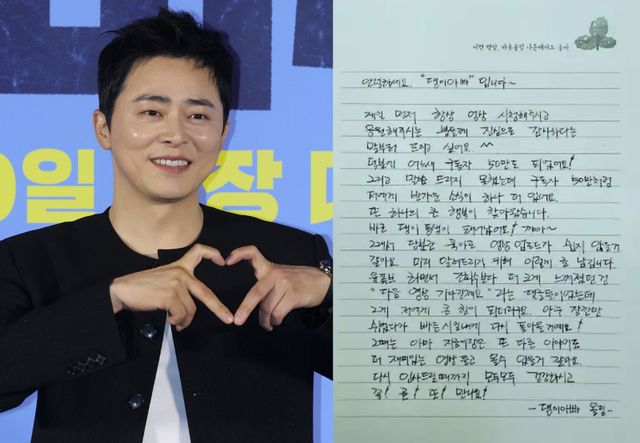 일 장
안녕하세요. "댕이아빠" 입니다~
제일 먼저 항상 영상 시청해주시고
응원해주시는 분들께 진심으로 감사하다는
말부터 드리고 싶어요 ^^
덕분에 어느새 구독자 50만도 되었어요!
그리고 말씀 드리지 못했는데 구독자 50만처럼
저에게 반가운 소식이 하나 더 있어요.
또 하나의 큰 행복이 찾아왔습니다.
바로 댕이 동생이 태어났어요! 꺄아~
그래서 당분간 육아로 영상 업로드가 쉽지 않을것
같아요. 미리 알려드리기 위해 이렇게 글 남깁니다.
유튜브 하면서 조회수보다 더 크게 느껴졌던 건
"다음 영상 기다릴게요" 라는 댓글들이었는데
그게 저에게 큰 힘이 되더라구요. 아주 잠깐만
쉬었다가 빠른시일내에 다시 돌아올거예요!
그때는 아마 또 다른 이야기로
더 재미있는 영상 들고 올수 있을거 같아요.
다시 인사드릴때까지 모두모두 건강하시고
꼭! 곧! 또! 만나요!
- 댕이아빠 올림-